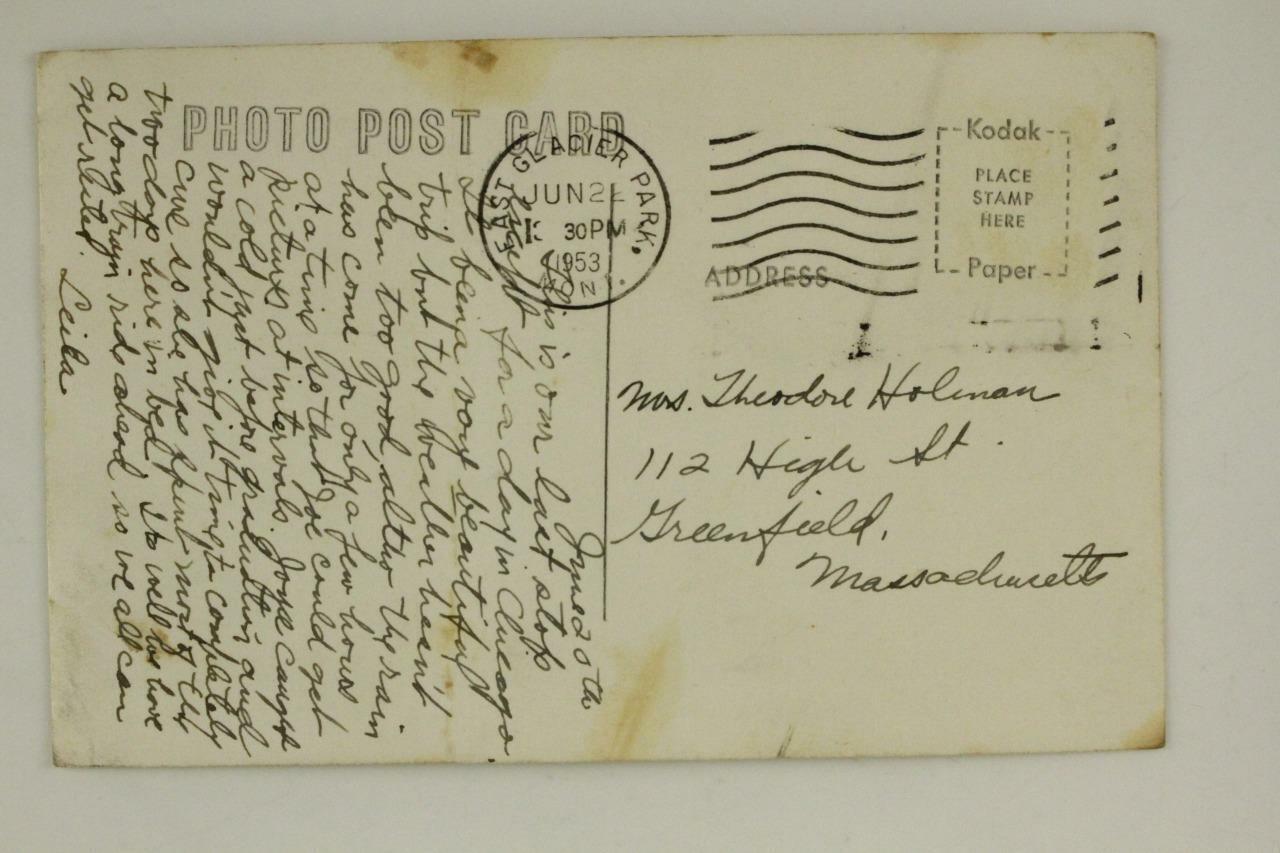 PHOTO POST CARD
EAST GLACIER PARK,
JUN 22
30 PM
1953
MONT.
Kodak
PLACE
STAMP
HERE
Paper
ADDRESS
Mrs. Theodore Holman
112 High St.
Greenfield,
Massachusetts
June 20th
This is our last stop
except for a day in Chicago
Its been a very beautiful
trip but the weather hasn't
been too good altho the rain
has come for only a few hours
at a time so that Joe could get
pictures at intervals. Jane caught
a cold just before graduation and
wouldn't give it time to completely
cure so she has spent most of the
two days here in bed. Its well we have
a long train ride ahead so we all can
get rested.
Leila